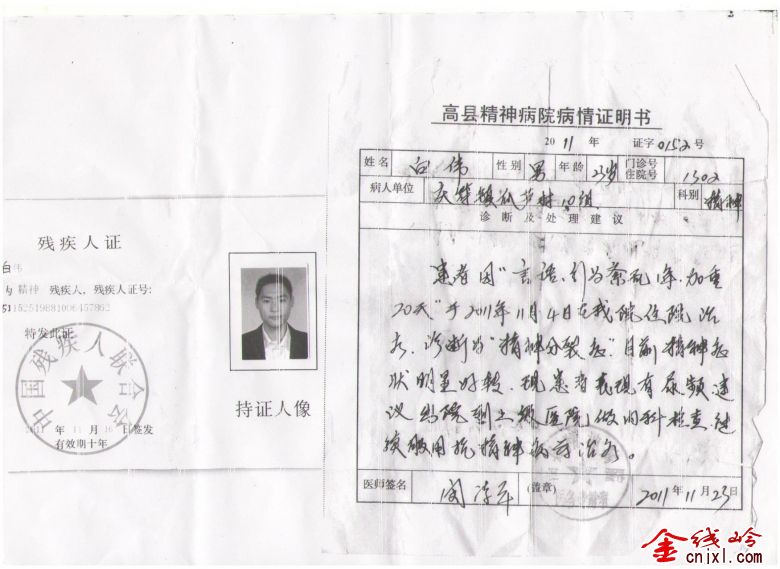 残疾人证
白伟
为 精神 残疾人、残疾人证号:
特发此证
中国残疾人联合会
年 11 月 16 日签发
有效期十年
持证人像
高县精神病院病情证明书
2011 年 证字0152号
姓名 白伟 性别 男 年龄 23岁 门诊号 住院号 1302
病人单位 庆符镇 村10组 科别 精神
诊断及处理建议
患者因“言语、行为紊乱1年,加重
20天”于2011年11月4日在我院住院治
疗,诊断为“精神分裂症”目前精神症
状明显好转,现患者表现有尿频,建
议出院到上级医院做内科检查,继
续服用抗精神病药治疗。
医师签名 (盖章) 2011年11月23日
金线岭
cnjxl.com